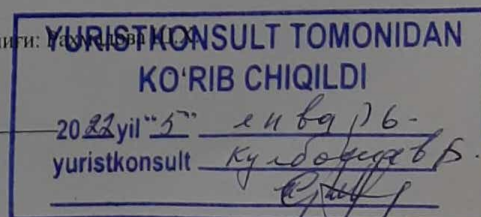 YURISTKONSULT TOMONIDAN
KO‘RIB CHIQILDI
2022 yil "5" январь
yuristkonsult